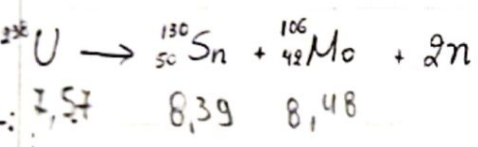 ²³⁸U → ¹³⁰₅₀Sn + ¹⁰⁶₄₂Mo + 2n
7,57 8,39 8,48